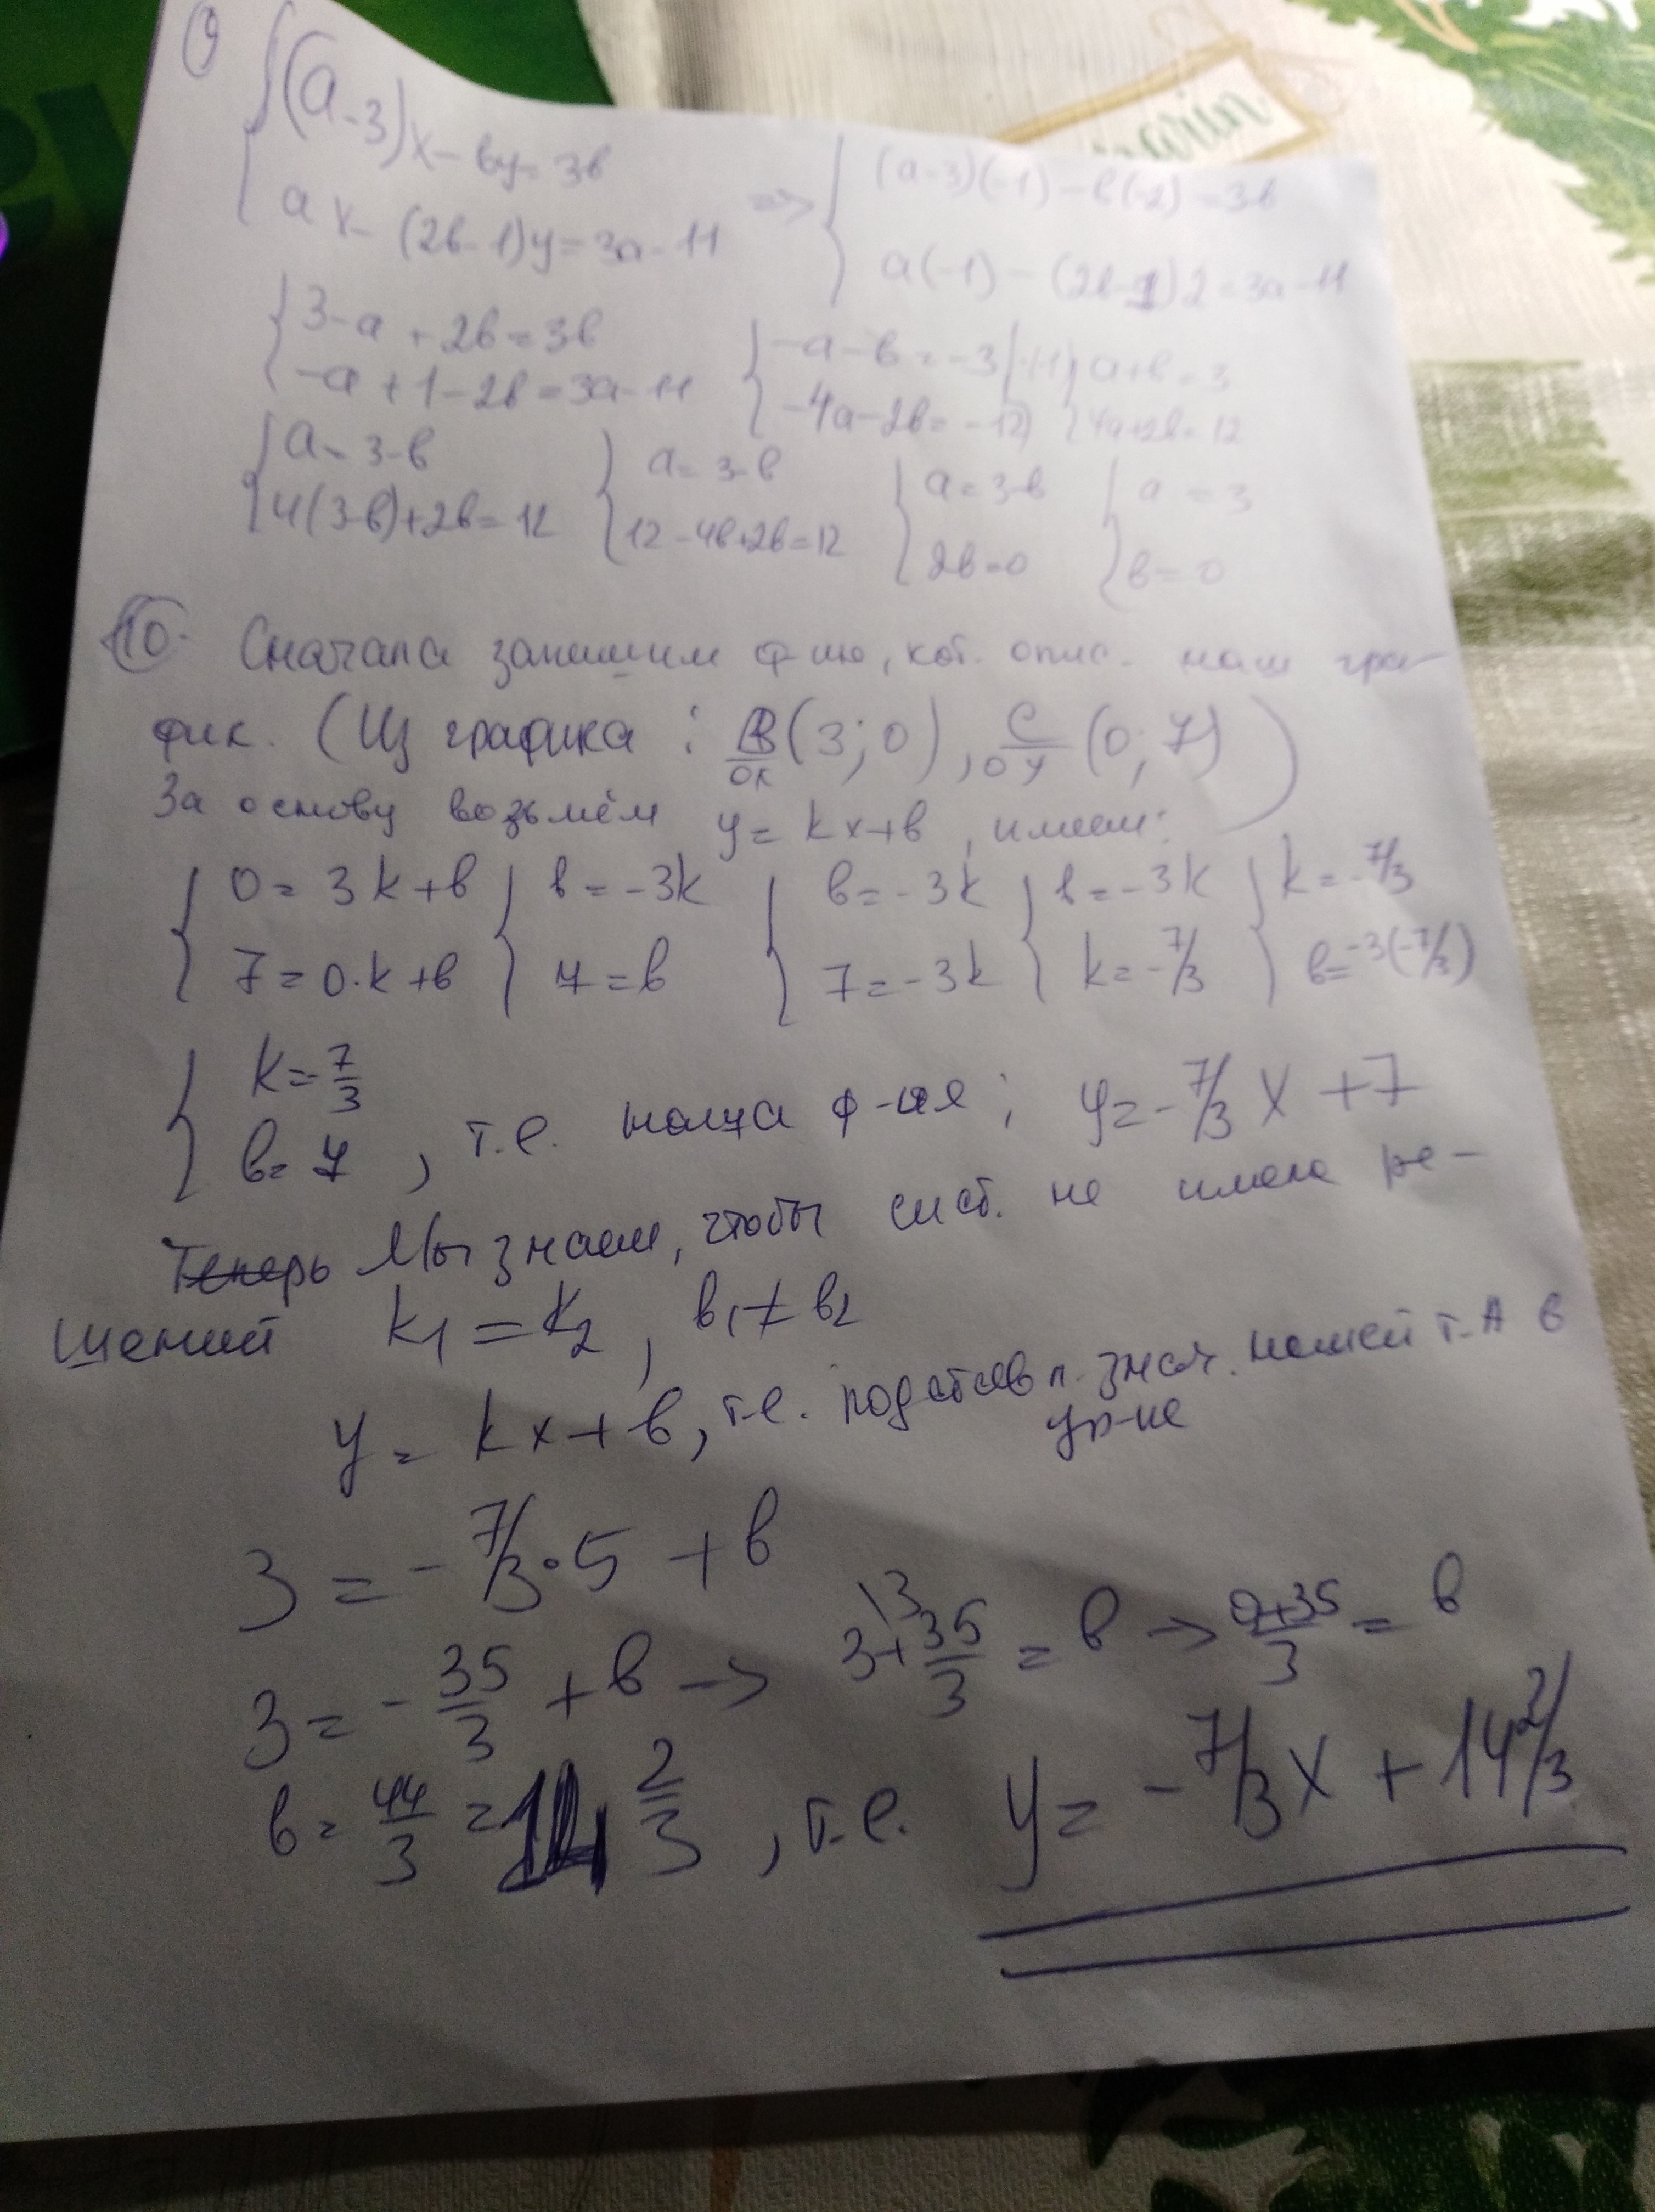 9
{(a-3)x - by = 3b
ax - (2b-1)y = 3a-11 => {(a-3)(-1) - b(-2) = 3b
a(-1) - (2b-1)2 = 3a-11
{3-a+2b=3b
-a+1-2b=3a-11 {-a-b=-3 |·(-1)
-4a-2b=-12 {a+b=3
4a+2b=12
{a=3-b
4(3-b)+2b=12 {a=3-b
12-4b+2b=12 {a=3-b
2b=0 {a=3
b=0
10. Сначала запишим ф-ию, кот. опис. наш гра-
фик. (Из графика: B(3;0), C(0;7))
OX OY
За основу возьмём y=kx+b, имеем:
{0=3k+b
7=0·k+b {b=-3k
7=b {b=-3k
7=-3k {b=-3k
k=-7/3 {k=-7/3
b=-3(-7/3)
{k=-7/3
b=7, т.е. наша ф-ия: y=-7/3x+7
Теперь Мы знаем, чтобы сист. не имела ре-
шений k1=k2, b1≠b2
y=kx+b, т.е. подставл. знач. нашей т.А в
ур-ие
3=-7/3·5+b
3=-35/3+b -> 3\3+35/3=b -> 9+35/3=b
b=44/3=14 2/3, т.е. y=-7/3x+14 2/3